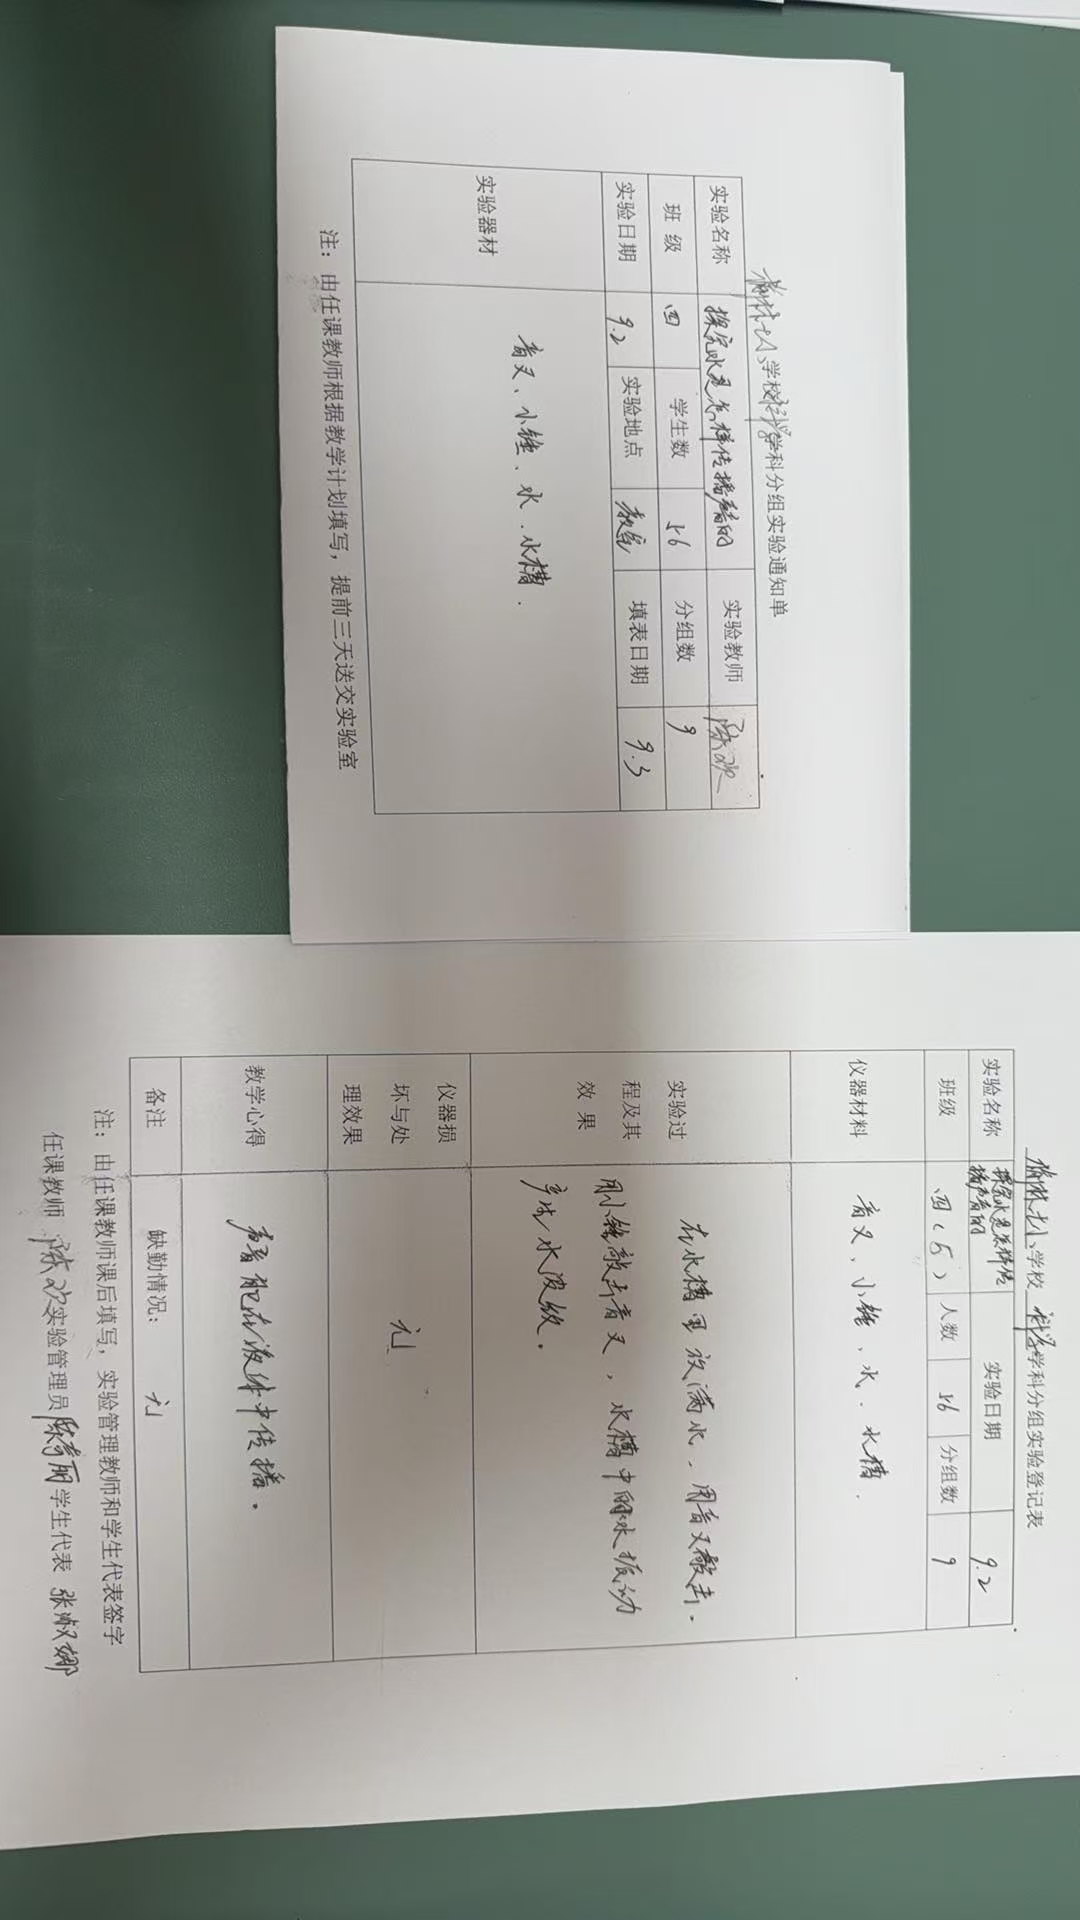 学校科学学科分组实验通知单
实验名称 探究水是怎样传播声音的 实验教师 陈欢
班 级 四 学生数 56 分组数 9
实验日期 9.2 实验地点 教室 填表日期 9.3
实验器材 音叉、小锤、水、水槽.
注：由任课教师根据教学计划填写，提前三天送交实验室
学校 科学学科分组实验登记表
实验名称 探究水是怎样传
播声音的 实验日期 9.2
班级 四（5） 人数 56 分组数 9
仪器材料 音叉、小锤、水、水槽.
实验过
程及其
效 果
在水槽里放满水，用音叉敲击.
用小锤敲击音叉，水槽中的水振动
产生水波纹。
仪器损
坏与处
理效果
无
教学心得 声音能在液体中传播。
备注 缺勤情况： 无
注：由任课教师课后填写，实验管理教师和学生代表签字
任课教师 陈欢 实验管理员 陈秀丽 学生代表 张淑娜